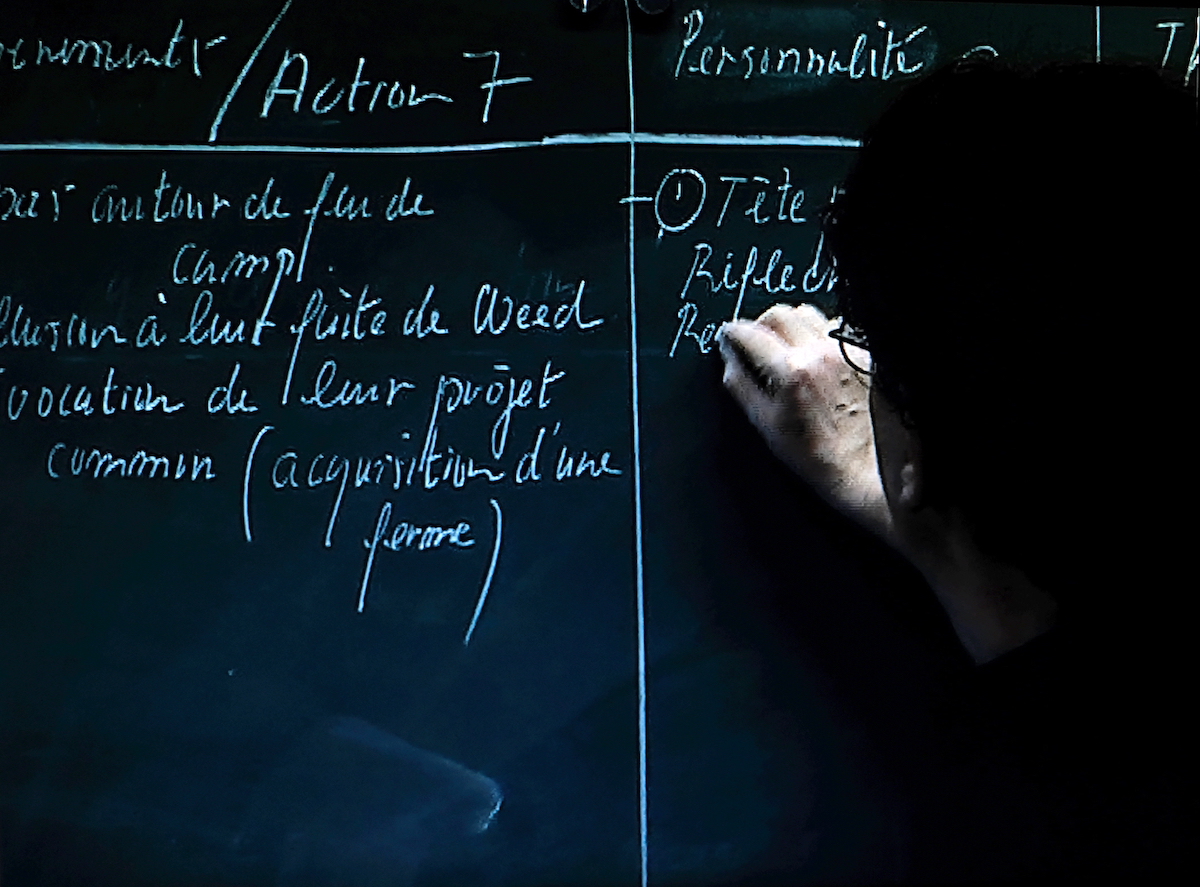 nements / Action 7
Personnalité
autour de feu de
camp.
llusion à leur fuite de Weed
vocation de leur projet
commun (acquisition d'une
ferme)
1 Tête
Réflech
Re